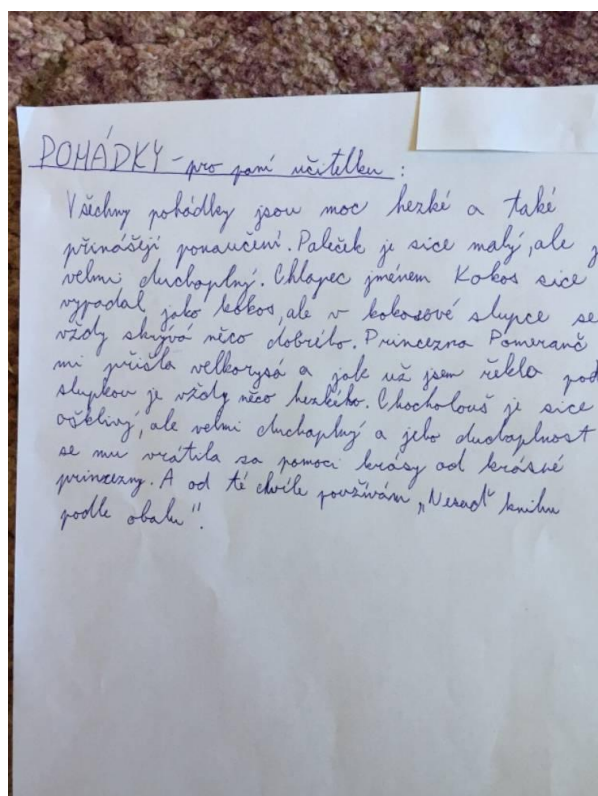 POHÁDKY - pro paní učitelku :
Všechny pohádky jsou moc hezké a také
přinášejí ponaučení. Paleček je sice malý, ale
velmi duchaplný. Chlapec jménem Kokos sice
vypadal jako kokos, ale v kokosové slupce se
vždy skrývá něco dobrého. Princezna Pomeranč
mi přišla velkorysá a jak už jsem řekla pod
slupkou je vždy něco hezkého. Chocholouš je sice
ošklivý, ale velmi duchaplný a jeho duchaplnost
se mu vrátila za pomoci krásy od krásné
princezny. A od té chvíle používám „Nesuď knihu
podle obalu".